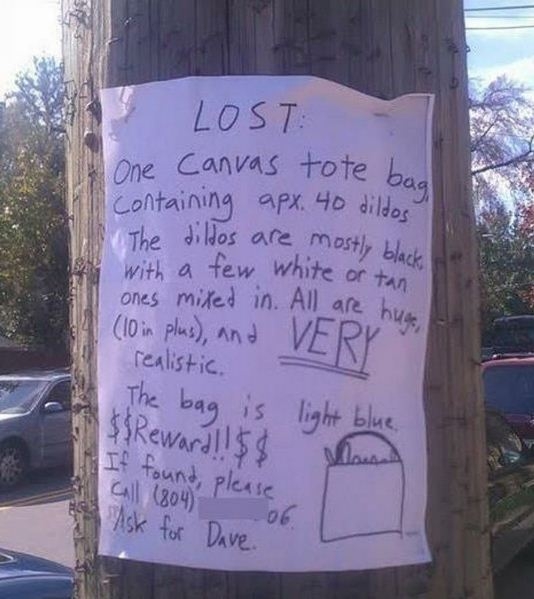 LOST:
One canvas tote bag,
Containing apx. 40 dildos
The dildos are mostly black,
with a few white or tan
ones mixed in. All are huge,
(10 in plus), and VERY
realistic.
The bag is light blue.
$$Reward!!$$
If found, please
Call (804) 06.
Ask for Dave.